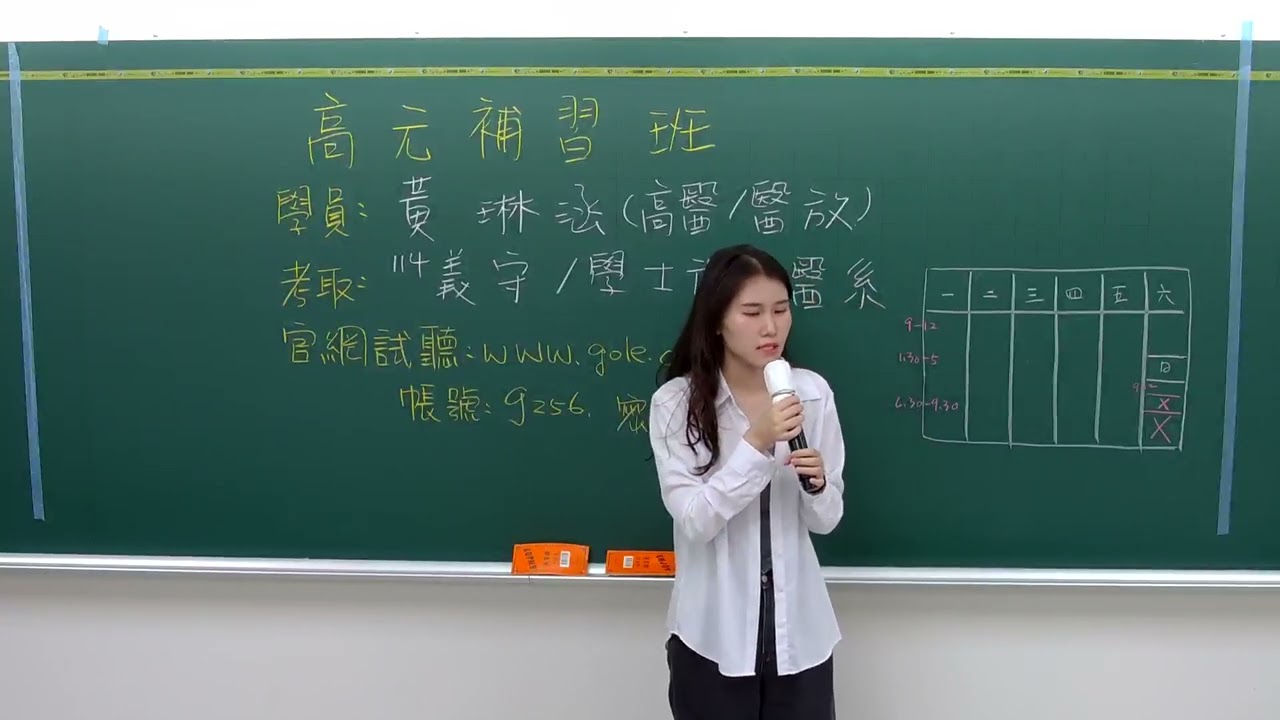 高元補習班
學員：黃琳涵（高醫/醫放）
考取：114義守/學士 醫系
官網試聽：www.gole.c
帳號：9256.
一 二 三 四 五 六
9-12
1:30-5
日
6:30-9:30
X
X